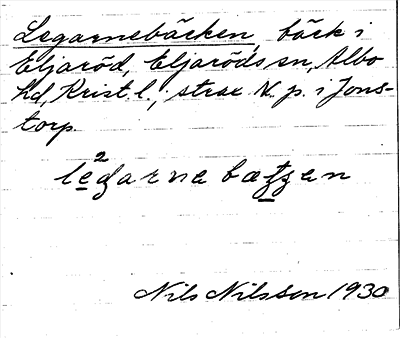 Legarnebäcken, bäck i
Eljaröd, Eljaröds sn, Albo
hd, Krist. l., strax V. p. i Jons-
torp.
Nils Nilsson 1930